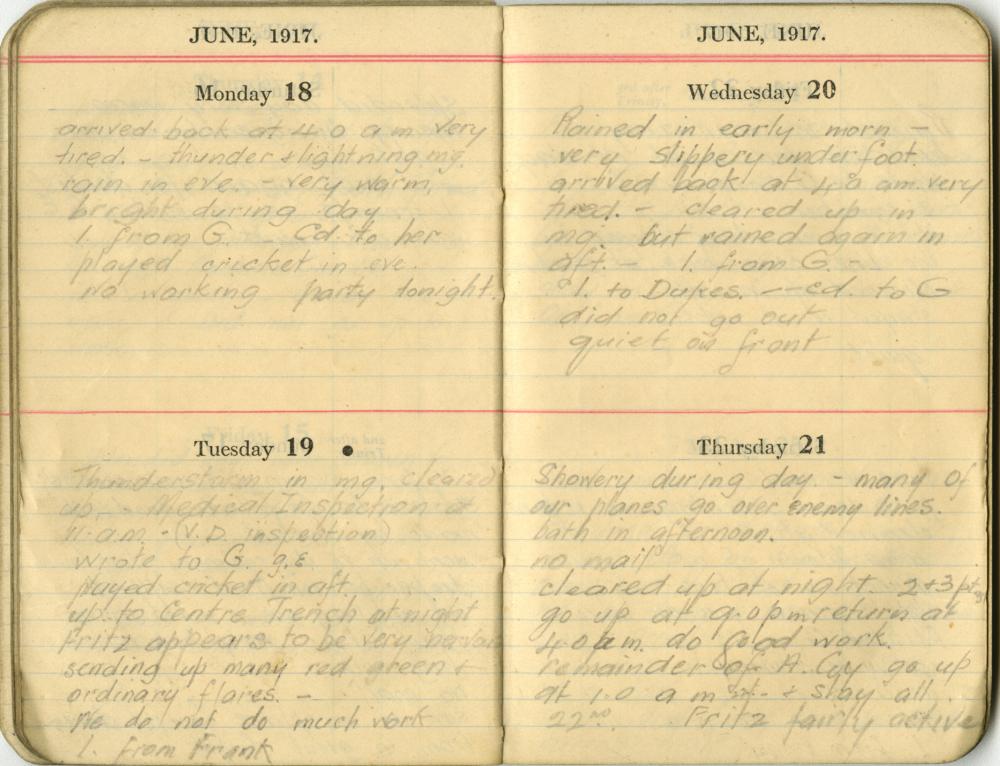 JUNE, 1917.
Monday 18
arrived back at 4.0 a m very
tired. - thunder & lightning mg.
rain in eve. - very warm,
bright during day
l. from G. - Cd. to her
played cricket in eve.
no working party tonight.
Tuesday 19
Thunderstorm in mg. cleared
up. - Medical Inspection at
11.a.m. - (V.D. inspection)
wrote to G.
played cricket in aft.
up to Centre Trench at night
Fritz appears to be very nervous
sending up many red green +
ordinary flares. -
We do not do much work
l. from Frank
JUNE, 1917.
Wednesday 20
Rained in early morn -
very slippery underfoot.
arrived back at 4.0 am. very
tired. - cleared up in
mg. but rained again in
aft. - l. from G. -
l. to Dukes. - cd. to G
did not go out
quiet on front
Thursday 21
Showery during day. - many of
our planes go over enemy lines.
bath in afternoon.
no mail
cleared up at night. 2+3 pts
go up at 9.0 p m return at
4.0 am. do good work.
remainder of A. Cy go up
at 1.0 a m + stay all
22nd. Fritz fairly active